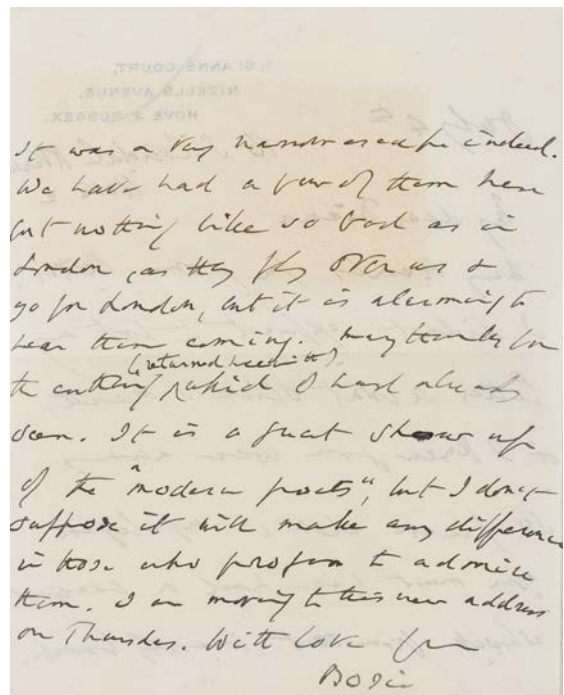 It was a very narrow escape indeed.
We have had a few of them here
but nothing like so bad as in
London, as they fly over us &
go for London, but it is alarming to
hear them coming. Many thanks for
(returned herewith)
the cutting which I had already
seen. It is a great show up
of the "modern poets", but I don't
suppose it will make any difference
in those who profess to admire
them. I am moving to this new address
on Thursday. With love from
Bosie